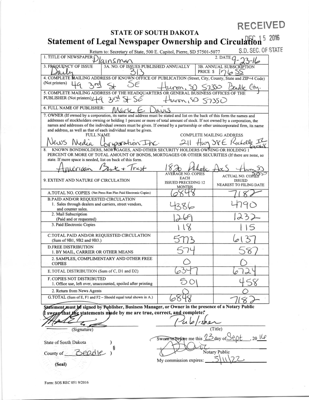 RECEIVED
DEC 15 2016
S.D. SEC. OF STATE
STATE OF SOUTH DAKOTA
Statement of Legal Newspaper Ownership and Circulation
Return to: Secretary of State, 500 E. Capitol, Pierre, SD 57501-5077
1. TITLE OF NEWSPAPER Plainsman
2. DATE 9-23-16
3. FREQUENCY OF ISSUE Daily
3A. NO. OF ISSUES PUBLISHED ANNUALLY 313
3B. ANNUAL SUBSCRIPTION PRICE $
4. COMPLETE MAILING ADDRESS OF KNOWN OFFICE OF PUBLICATION (Street, City, County, State and ZIP+4 Code)
(Not printers) 49 3rd St SE Huron, SD 57350
5. COMPLETE MAILING ADDRESS OF THE HEADQUARTERS OR GENERAL BUSINESS OFFICES OF THE
PUBLISHER (Not printers) 49 3rd St SE Huron, SD 57350
6. FULL NAME OF PUBLISHER: Mark E. Davis
7. OWNER (If owned by a corporation, its name and address must be stated and list on the back of this form the names and
addresses of stockholders owning or holding 1 percent or more of total amount of stock. If not owned by a corporation, the
names and addresses of the individual owners must be given. If owned by a partnership or other unincorporated firm, its name
and address, as well as that of each individual must be given.
FULL NAME COMPLETE MAILING ADDRESS
News Media Corporation Inc 211 Hwy 38E
8. KNOWN BONDHOLDERS, MORTGAGES, AND OTHER SECURITY HOLDERS OWNING OR HOLDING 1
PERCENT OR MORE OF TOTAL AMOUNT OF BONDS, MORTGAGES OR OTHER SECURITIES (If there are none, so
state. If more space is needed, list on back of this form.
American Bank + Trust
9. EXTENT AND NATURE OF CIRCULATION
AVERAGE NO. COPIES EACH ISSUED PRECEDING 12 MONTHS
ACTUAL NO. COPIES ISSUED NEAREST TO FILING DATE
A. TOTAL NO. COPIES (Net Press Run Plus Paid Electronic Copies) 6848 7182
B. PAID AND/OR REQUESTED CIRCULATION
1. Sales through dealers and carriers, street vendors, and counter sales. 4386 4790
2. Mail Subscription (Paid and or requested) 1269 1232
3. Paid Electronic Copies 118 115
C. TOTAL PAID AND/OR REQUESTED CIRCULATION
(Sum of 9B1, 9B2 and 9B3.) 5773 6137
D. FREE DISTRIBUTION
1. BY MAIL, CARRIER OR OTHER MEANS 574 587
2. SAMPLES, COMPLIMENTARY AND OTHER FREE COPIES 0 0
E. TOTAL DISTRIBUTION (Sum of C, D1 and D2) 6347 6724
F. COPIES NOT DISTRIBUTED
1. Office use, left over, unaccounted, spoiled after printing 501 458
2. Return from News Agents 0 0
G. TOTAL (Sum of E, F1 and F2 – Should equal total shown in A.) 6848 7182
Statement must be signed by Publisher, Business Manager, or Owner in the presence of a Notary Public
I swear that the statements made by me are true, correct, and complete:
Publisher
(Signature) (Title)
State of South Dakota )
Sworn to before me this 23 day of Sept 2016
County of Beadle )
Notary Public
(Seal)
My commission expires: 5/11/22
Form: SOS REC 051 9/2016